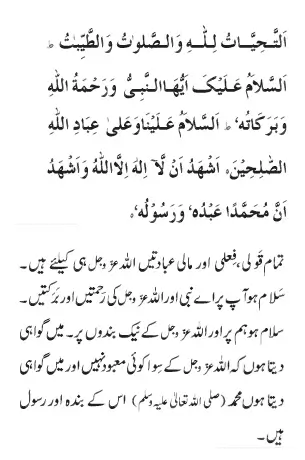 اَلتَّحِيَّاتُ لِلّٰهِ وَالصَّلَوٰتُ وَالطَّيِّبٰتُ ؕ
اَلسَّلَامُ عَلَيْكَ اَيُّهَاالنَّبِىُّ وَرَحْمَةُ اللهِ
وَبَرَكَاتُهٗ ؕ اَلسَّلَامُ عَلَيْنَاوَعَلىٰ عِبَادِ اللهِ
الصّٰلِحِيْنَ۔ اَشْهَدُ اَنْ لَّآ اِلٰهَ اِلَّااللهُ وَاَشْهَدُ
اَنَّ مُحَمَّدًا عَبْدُهٗ وَرَسُوْلُهٗ۔
تمام قولی، فعلی اور مالی عبادتیں اللہ عزوجل ہی کیلئے ہیں۔
سَلام ہو آپ پر اے نبی اور اللہ عزوجل کی رَحمتیں اور بَرَکتیں۔
سَلام ہو ہم پر اور اللہ عزوجل کے نیک بندوں پر۔ میں گواہی
دیتا ہوں کہ اللہ عزوجل کے سِوا کوئی معبود نہیں اور میں گواہی
دیتا ہوں محمد (صلی اللہ تعالیٰ علیہ وسلم) اس کے بندہ اور رسول
ہیں۔